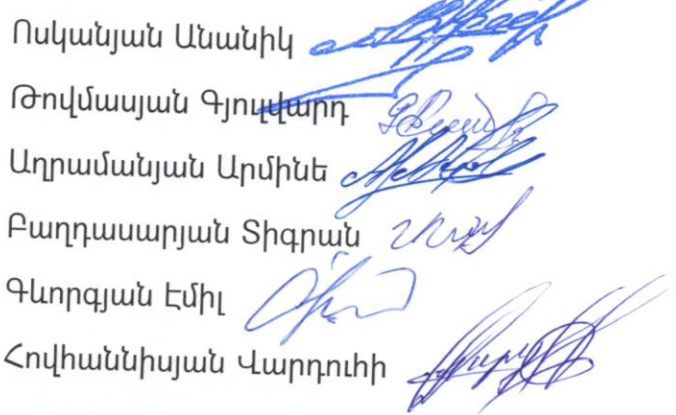 Ոսկանյան Անանիկ
Թովմասյան Գյուլվարդ
Աղրամանյան Արմինե
Բաղդասարյան Տիգրան
Գևորգյան Էմիլ
Հովհաննիսյան Վարդուհի